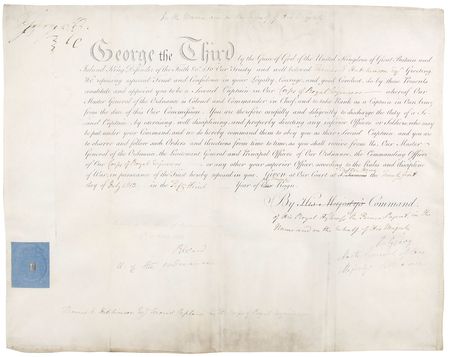 In the Name and on the Behalf of His Majesty
George the Third by the Grace of God of the United Kingdom of Great Britain and
Ireland King, Defender of the Faith, &c. To Our Trusty and well beloved Hutchinson Esqr. Greeting
We reposing especial Trust and Confidence in your Loyalty, Courage, and good Conduct, do by these Presents
constitute and appoint you to be a Second Captain in Our Corps of Royal Engineers whereof Our
Master General of the Ordnance is Colonel and Commander in Chief, and to take Rank as a Captain in Our Army
from the date of this Our Commission. You are therefore carefully and diligently to discharge the Duty of a
Second Captain, by exercising, well disciplining, and properly directing such inferior Officers or Soldiers who may
be put under your Command, and we do hereby command them to obey you as their Second Captain: and you are
to observe and follow such Orders and Directions from time to time, as you shall receive from Us, Our Master
General of the Ordnance, the Lieutenant General and Principal Officers of Our Ordnance, the Commanding Officer
of Our Corps of Royal Engineers or any other your superior Officer, according to the Rules and discipline
of War, in pursuance of the Trust hereby reposed in you. Given at Our Court at the
day of July 1813 in the Fifty third Year of Our Reign.
By His Majesty's Command
of His Royal Highness the Prince Regent in the
Name and on the behalf of His Majesty
Master General of the
Thomas K. Hutchinson Esqr. Second Captain in the Corps of Royal Engineers